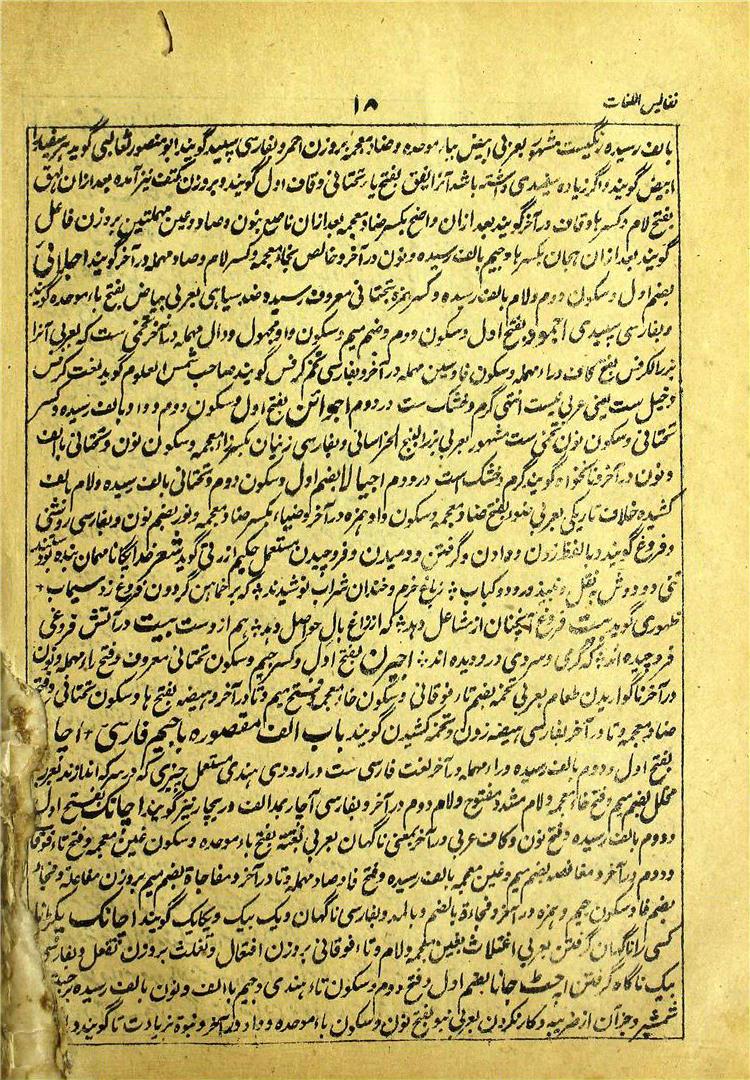 نفائس اللغات
۱۸
بالف رسیده رنگیست مشهور بعربی ابیض بباء موحده و ضاد معجمه بروزن احمر و بفارسی سپید گویند ابو منصور ثعالبی گوید هر سفید را
ابیض گویند و اگر زیاده سفیدی داشته باشد آنرا یقق بفتح یاء تحتانی و قاف اول گویند و بروزن کتف نیز آمده بعد ازان لهق
بفتح لام و کسر ها و قاف در آخر گویند بعد ازان واضح بکسر ضاد معجمه بعد ازان ناصع بنون و صاد و عین مهملتین بروزن فاعل
گویند بعد ازان هجان بکسر ها و جیم بالف رسیده و نون در آخر و خالص بخاء معجمه و کسر لام و صاد مهمله در آخر گویند اجلائی
بضم اول و سکون دوم و لام بالف رسیده و کسر همزه و تحتانی معروف رسیده ضد سیاهی بعربی بیاض بفتح باء موحده گویند
و بفارسی سپیدی اجمود بفتح اول و سکون دوم و ضم میم و سکون واو مجهول و دال مهمله در آخر تخمی ست که بعربی آنرا
بزر الکرفس بفتح کاف و راء مهمله و سکون فا و سین مهمله در آخر و بفارسی تخم کرفس گویند صاحب شمس العلوم گوید لغت کرفس
دخیل ست یعنی عربی نیست انتهی گرم و خشک ست در دوم اجوائن بفتح اول و سکون دوم و واو بالف رسیده و کسر
تحتانی و سکون نون تخمی ست مشهور بعربی بزر البنج الخراسانی و بفارسی زنیان بکسر زاء معجمه و سکون نون و تحتانی بالف
و نون در آخر و نانخواه گویند گرم و خشک است در دوم اجیالا بضم اول و سکون دوم و تحتانی بالف رسیده و لام بالف
کشیده خلاف تاریکی بعربی ضوء بفتح ضاد معجمه و سکون واو و همزه در آخر و ضیاء بکسر ضاد معجمه و نور بضم نون و بفارسی روشنی
و فروغ گویند و بالفظ زدن و دادن و گرفتن و دمیدن و فروچیدن مستعمل حکیم ازرقی گوید شعر خدایگانا مهمان بنده بودستند
تنی دو دوش بنقل و نبیذ و رود و کباب زباغ خرم و خندان شراب نوشیدند که بر خماهن گردون فروغ زد سیماب
ظهوری گوید بیت فروغ آنچنان از مشاعل دهد که از زاغ بال حواصل دهد هم از وست بیت در آتش فروغی
فرو چیده اند که گرمی و سردی در و دیده اند اجیرن بفتح اول و کسر جیم و سکون تحتانی معروف و فتح راء مهمله و نون
در آخر ناگواریدن طعام بعربی تخمه بضم تاء فوقانی و سکون خاء معجمه و فتح میم و تا در آخر و هیضه بفتح ها و سکون تحتانی و فتح
ضاد معجمه و تا در آخر بفارسی هیضه زدن و تخمه کشیدن گویند باب الف مقصوره با جیم فارسی اچار
بفتح اول و دوم بالف رسیده و راء مهمله در آخر لغت فارسی ست و در اردوی هندی مستعمل چیزی که در سرکه اندازند بعربی
مخلل بضم میم و فتح خاء معجمه و لام مشدد مفتوح و لام دوم در آخر و بفارسی آچار بمد الف و ریچار نیز گویند اچانک بفتح اول
و دوم بالف رسیده و فتح نون و کاف عربی در آخر بمعنی ناگهان بعربی بغتة بفتح باء موحده و سکون غین معجمه و فتح تاء فوقانی
و دوم در آخر و مغافصه بضم میم و غین معجمه بالف رسیده و فتح فا و صاد مهمله و تا در آخر و مفاجاة بضم میم بروزن مفاعله و فجاء
بضم فا و سکون جیم و همزه در آخر و فجاءة بالضم و بالمد و بفارسی ناگهان و یک بیک و یکایک گویند اچانک پکڑنا
کسی را ناگهان گرفتن بعربی اغتلاث بغین معجمه و لام و تاء فوقانی بروزن افتعال و تغلث بروزن تفعل و بفارسی
بیک ناگاه گرفتن اچٹ جانا بضم اول و فتح دوم و سکون تاء هندی و جیم بالف و نون بالف رسیده
شمشیر و جز آن از ضریبه و کار نکردن بعربی نبو بفتح نون و سکون باء موحده و واو در آخر و نبوة بزیادت تا گویند